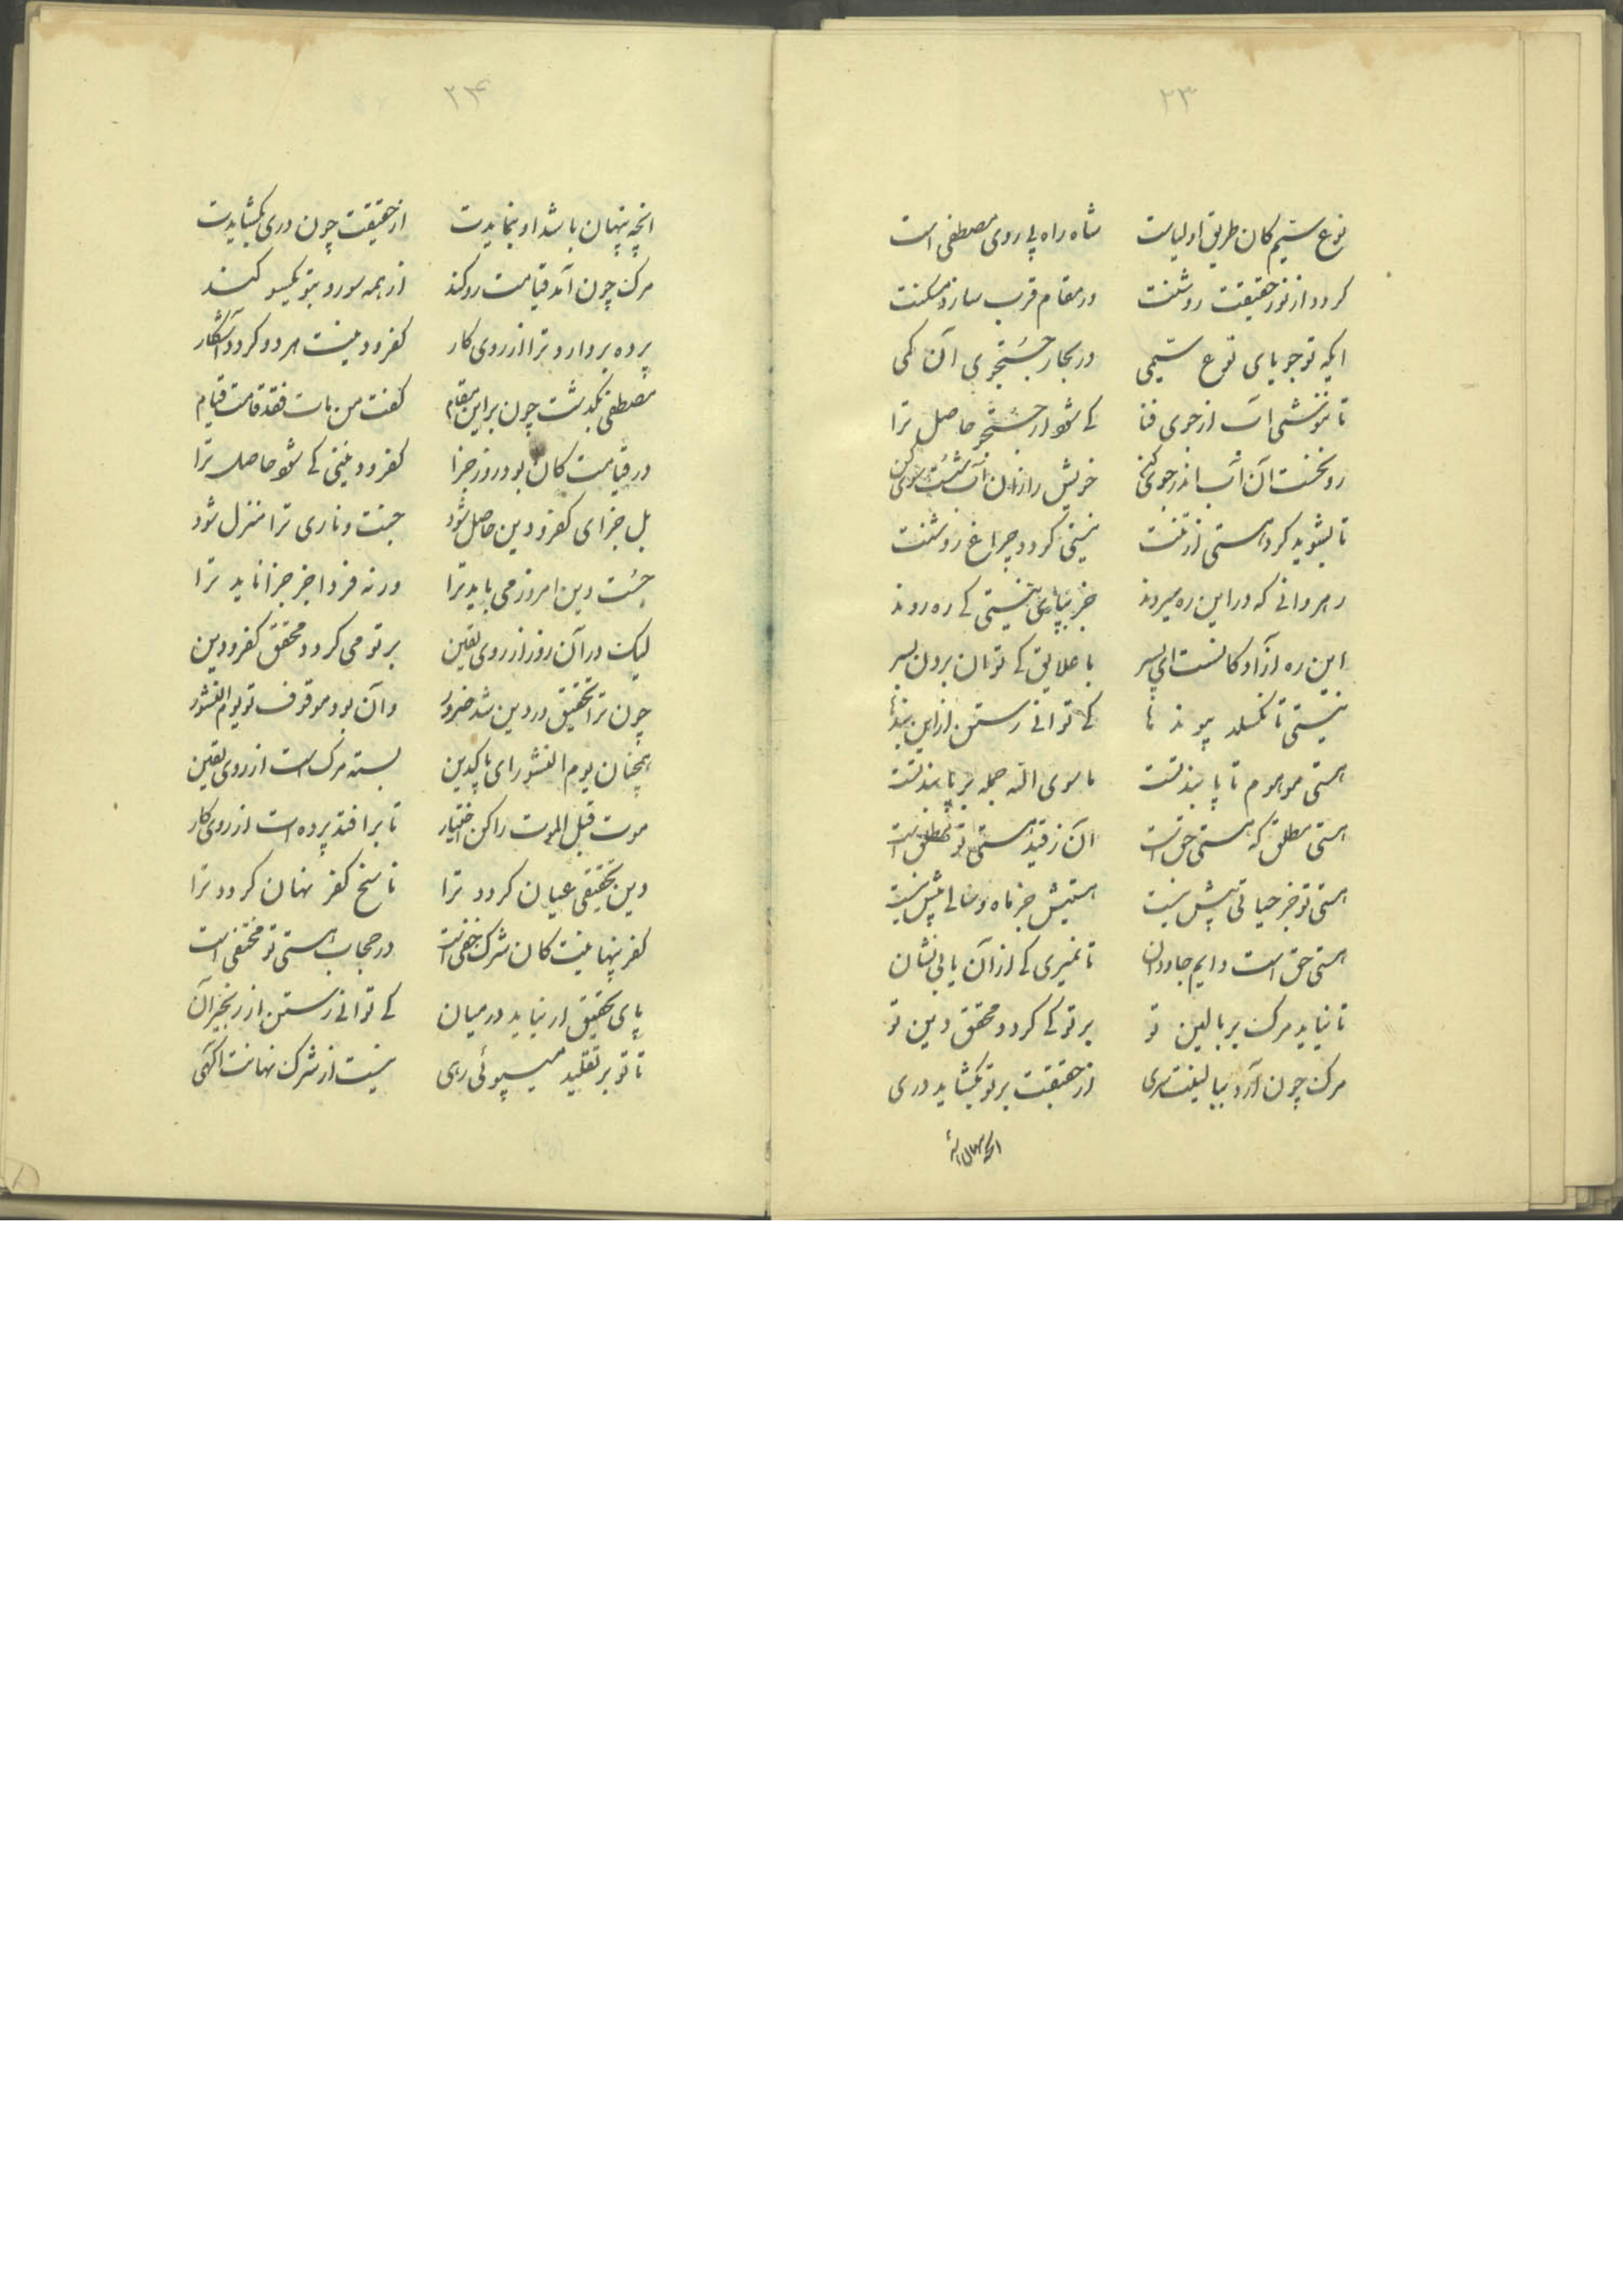 ۲۳
نوع سیم کان طریق اولیاست شاه راه پی روی مصطفی است
کردد از نور حقیقت روشنت در مقام قرب سازد مسکنت
ایکه تو جویای نوع سیمی در بحار جستجوی آن کمی
تا ننوشی آب از جوی فنا کے شود از جستجو حاصل ترا
رو نخست آن آب اندر جوی کن خویش را زان آب شست شوی کن
تا بشوید کرد هستی از تنت نیستی کردد چراغ روشنت
رهروانے که در این ره میروند جز بپای نیستی کے ره روند
این ره آزادکانست ای پسر با علایق کے توان بردن بسر
نیستی تا نکسلد پیوند ها کے توانے رستن از این بندها
هستی موهوم تا پابند تست ما سوی الله جمله بر پا بند تست
هستی مطلق که هستی حق است آن ز قید هستی تو مطلق است
هستی تو جز حیاتی بیش نیست هستیش جز ماه و سالے بیش نیست
هستی حق است دایم جاودان تا نمیری کے از آن یابی نشان
تا نیاید مرک بر بالین تو بر تو کے کردد محقق دین تو
مرک چون آرد ببالینت سری از حقیقت بر تو بکشاید دری
انچه پنهان باشد
۲۴
انچه پنهان باشد او بنمایدت از حقیقت چون دری بکشایدت
مرک چون آمد قیامت رو کند از همه سو رو بتو یکسو کند
پرده بردارد ترا از روی کار کفر و دینت هر دو کردد آشکار
مصطفی بکذشت چون بر این مقام کفت من مات فقد قامت قیام
در قیامت کان بود روز جزا کفر و دینی کے شود حاصل ترا
بل جزای کفر و دین حاصل شود جنت و ناری ترا منزل شود
جست دین امروز می باید ترا ورنه فردا جز جزا ناید ترا
لیک در آن روز از روی یقین بر تو می کردد محقق کفر و دین
چون ترا تحقیق در دین شد ضرور وآن بود موقوف تو یوم النشور
همچنان یوم النشور ای پاکدین بسته مرک است از روی یقین
موت قبل الموت را کن اختیار تا برافتد پرده است از روی کار
دین تحقیقی عیان کردد ترا تا سنخ کفر نهان کردد ترا
کفر پنهانیت کان شرک خفی است در حجاب هستی تو مختفی است
پای تحقیق ار نیاید در میان کے توانے رستن از زنجیر آن
تا تو بر تقلید میپوئی رهی نیست از شرک نهانت آکهی